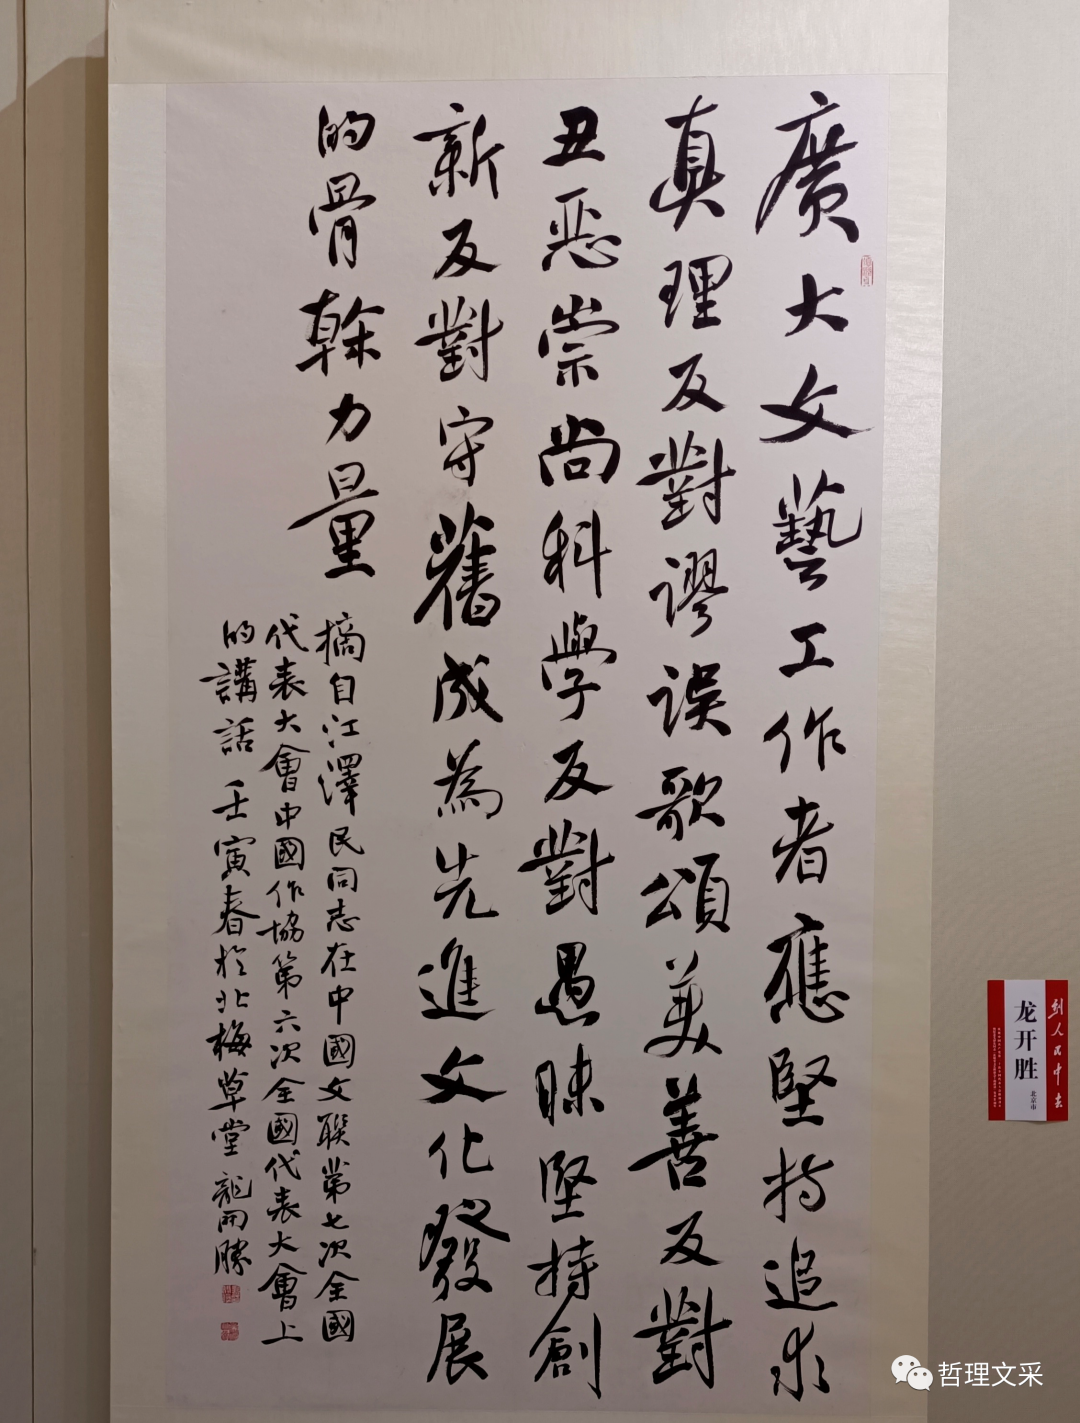 廣大文藝工作者應堅持追求
真理反對謬误歌頌美善反對
丑惡崇尚科學反對愚昧堅持創
新反對守舊成為先進文化發展
的骨幹力量
摘自江澤民同志在中國文聯第七次全國
代表大會中國作協第六次全國代表大會上
的講話 壬寅春於北梅草堂 龍開勝
到人民中去
龙开胜
北京市
哲理文采